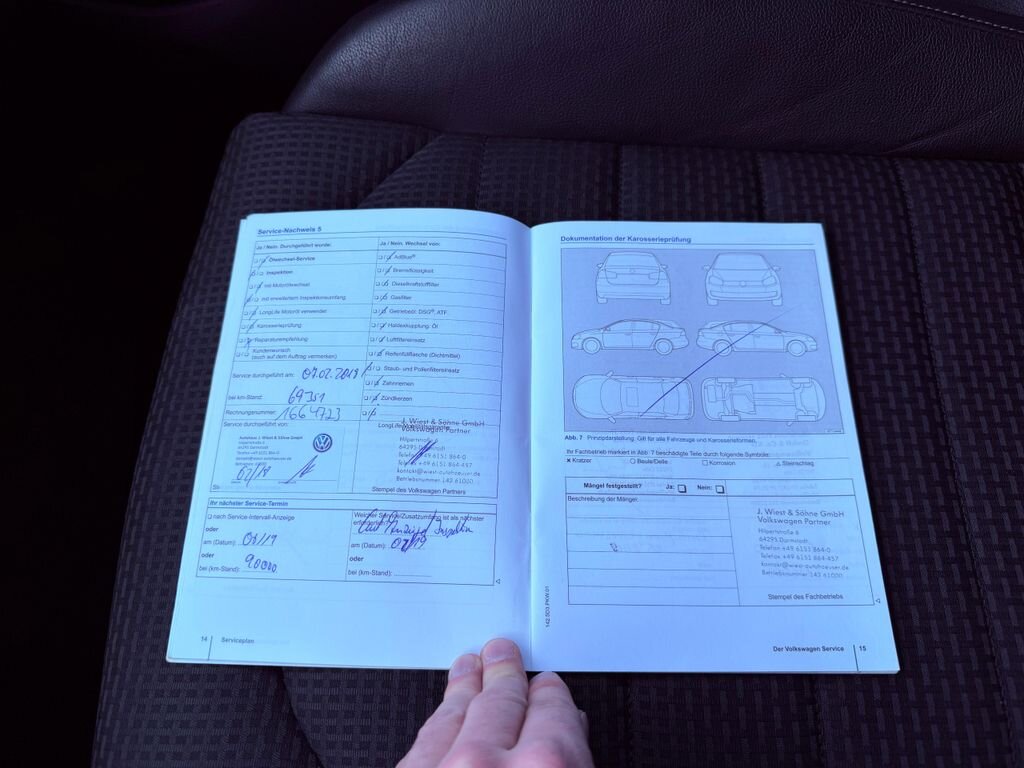 Service-Nachweis 5
Ja / Nein. Durchgeführt wurde:
Ölwechsel-Service
Inspektion
mit Motorölwechsel
mit erweitertem Inspektionsumfang
LongLife Motoröl verwendet
Karosserieprüfung
Reparaturempfehlung
Kundenwunsch
(auch auf dem Auftrag vermerken)
Service durchgeführt am: 07.02.2019
bei km-Stand: 69351
Rechnungsnummer: 1664723
Service durchgeführt von:
Autohaus J. Wiest & Söhne GmbH
Hilpertstraße 8
64295 Darmstadt
02/19
Ja / Nein. Wechsel von:
AdBlue®
Bremsflüssigkeit
Dieselkraftstofffilter
Gasfilter
Getriebeöl: DSG®, ATF
Haldexkupplung: Öl
Luftfiltereinsatz
Reifenfüllflasche (Dichtmittel)
Staub- und Pollenfiltereinsatz
Zahnriemen
Zündkerzen
J. Wiest & Söhne GmbH
Volkswagen Partner
Hilpertstraße 8
64295 Darmstadt
Telefon +49 6151 864-0
Telefax +49 6151 864-457
kontakt@wiest-autohaeuser.de
Betriebsnummer 142 61000
Stempel des Volkswagen Partners
Ihr nächster Service-Termin
nach Service-Intervall-Anzeige
oder
am (Datum):
oder
bei (km-Stand): 90000
Welcher Service/Zusatzumfang ist als nächster
erforderlich?
am (Datum):
oder
bei (km-Stand):
14 Serviceplan
Dokumentation der Karosserieprüfung
Abb. 7 Prinzipdarstellung: Gilt für alle Fahrzeuge und Karosserieformen.
Ihr Fachbetrieb markiert in Abb. 7 beschädigte Teile durch folgende Symbole:
x Kratzer ○ Beule/Delle □ Korrosion △ Steinschlag
Mängel festgestellt? Ja: Nein:
Beschreibung der Mängel:
J. Wiest & Söhne GmbH
Volkswagen Partner
Hilpertstraße 8
64295 Darmstadt
Telefon +49 6151 864-0
Telefax +49 6151 864-457
kontakt@wiest-autohaeuser.de
Betriebsnummer 142 61000
Stempel des Fachbetriebs
142.5D3.PKW.01
Der Volkswagen Service 15